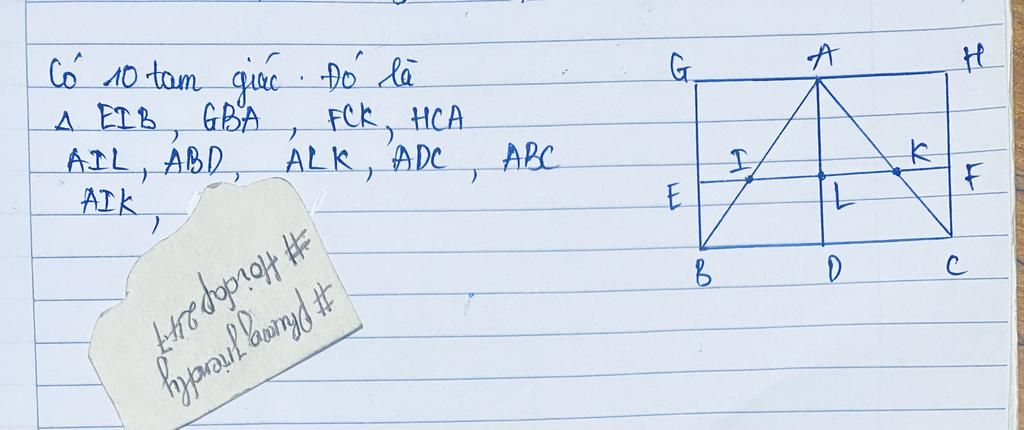 Có 10 tam giác. Đó là
Δ EIB, GBA, FCK, HCA
AIL, ABD, ALK, ADC, ABC
AIK,
G A H
I K
E L F
B D C
# Hoidap247
# phuongfriendly